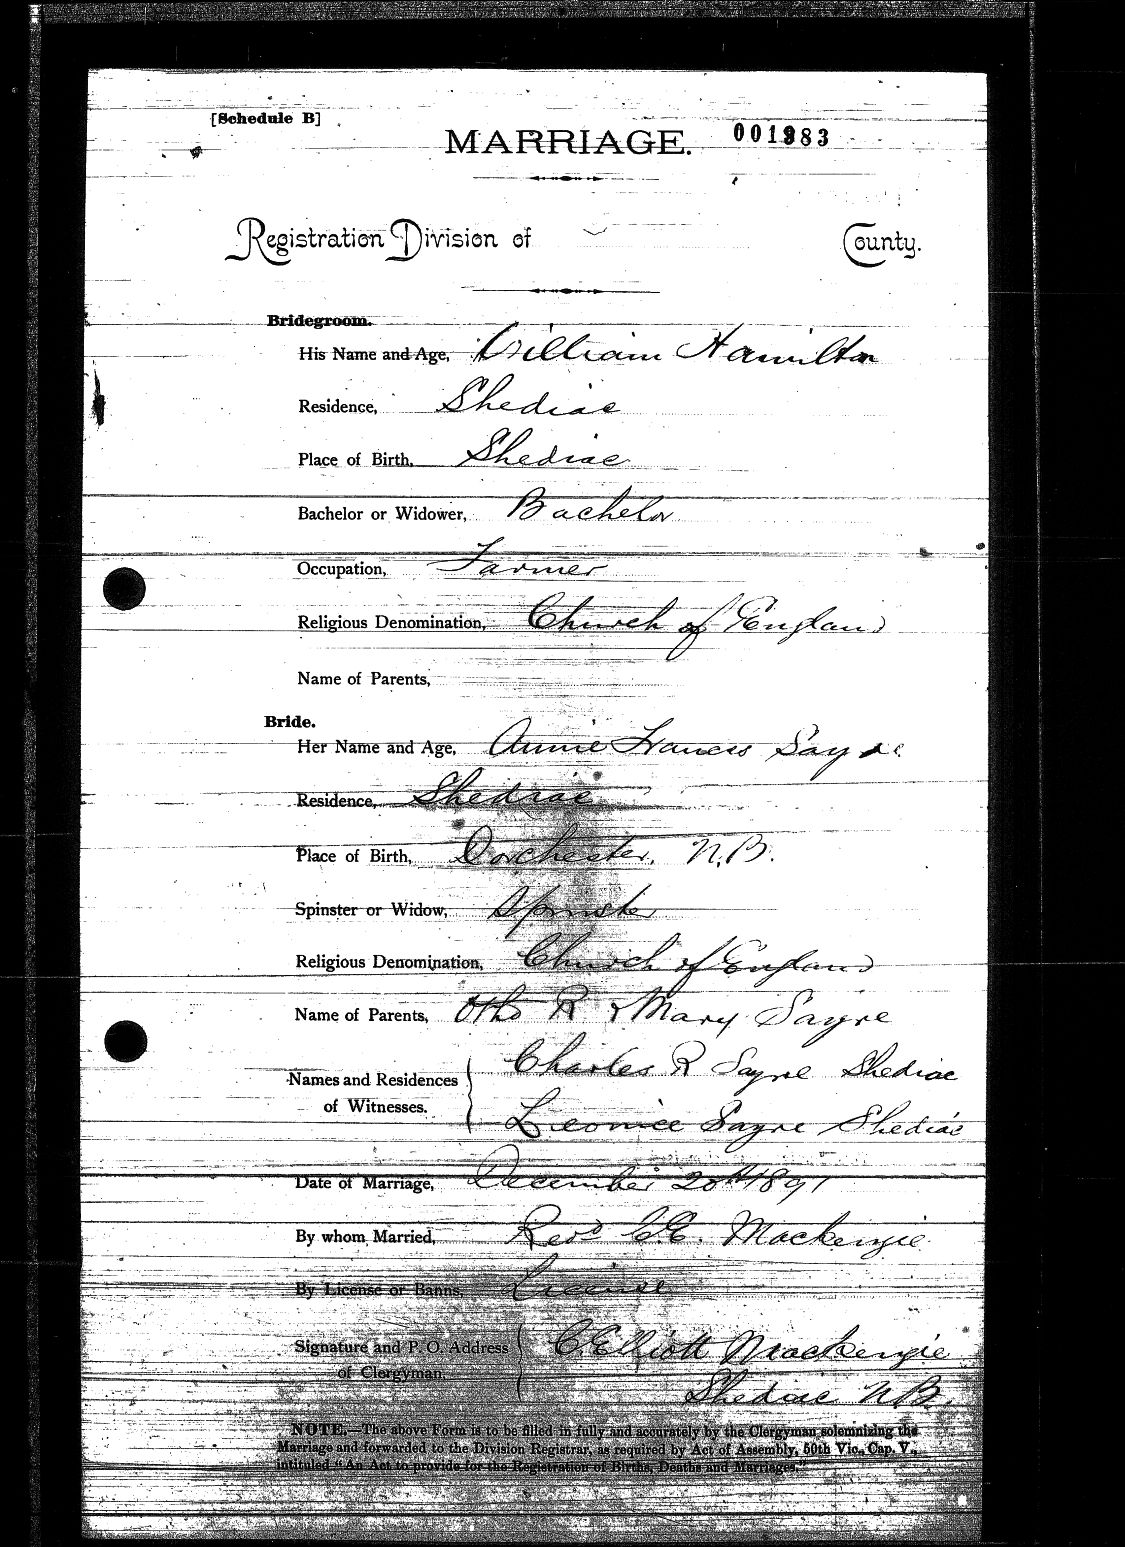 [Schedule B]
MARRIAGE. 001983
Registration Division of County.
Bridegroom.
His Name and Age, William Hamilton
Residence, Shediac
Place of Birth, Shediac
Bachelor or Widower, Bachelor
Occupation, Farmer
Religious Denomination, Church of England
Name of Parents,
Bride.
Her Name and Age, Annie Francis Sayre
Residence, Shediac
Place of Birth, Dorchester, N.B.
Spinster or Widow, Spinster
Religious Denomination, Church of England
Name of Parents, Otho R & Mary Sayre
Charles R Sayre Shediac
Names and Residences
of Witnesses.
Leonice Sayre Shediac
Date of Marriage, December 20th 1891
By whom Married, Revd C.E. Mackenzie
By License or Banns, License
Signature and P. O. Address C Elliott Mackenzie
of Clergyman. Shediac N.B.
NOTE.—The above Form is to be filled in fully and accurately by the Clergyman solemnizing the
Marriage and forwarded to the Division Registrar, as required by Act of Assembly, 50th Vic., Cap. V.,
intituled "An Act to provide for the Registration of Births, Deaths and Marriages."